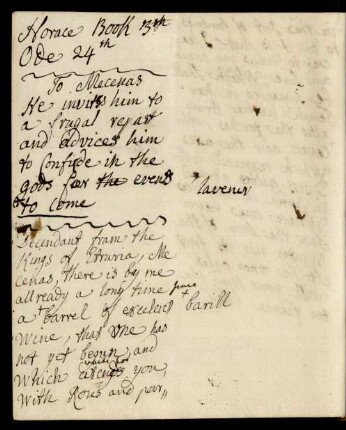 Horace Book 3th
Ode 24th
To Mecenas
He invits him to
a frugal repast
and advices him
to confide in the
gods for the events
to come
lavenir
Decendant from the
Kings of Etruria, Me
cenas, there is by me
allready a long time since
a barrel of excelent barill
Wine, that One has
not yet begun, and
Which waits for you,
With Roses and per,,